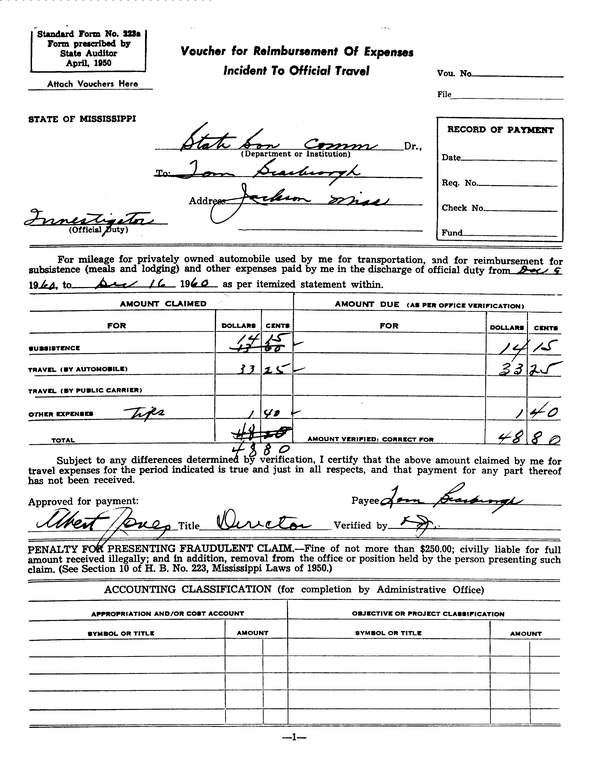 Standard Form No. 223a
Form prescribed by
State Auditor
April, 1950
Attach Vouchers Here
Voucher for Reimbursement Of Expenses
Incident To Official Travel
Vou. No.
File
STATE OF MISSISSIPPI
RECORD OF PAYMENT
Date
Req. No.
Check No.
Fund
State Sov Comm Dr.,
(Department or Institution)
To: Tom Scarbrough
Address Jackson Miss
Investigator
(Official Duty)
For mileage for privately owned automobile used by me for transportation, and for reimbursement for
subsistence (meals and lodging) and other expenses paid by me in the discharge of official duty from Dec 5
1960, to Dec 16 1960 as per itemized statement within.
AMOUNT CLAIMED AMOUNT DUE (AS PER OFFICE VERIFICATION)
FOR DOLLARS CENTS FOR DOLLARS CENTS
SUBSISTENCE 14 15 14 15
TRAVEL (BY AUTOMOBILE) 33 25 33 25
TRAVEL (BY PUBLIC CARRIER)
OTHER EXPENSES Tips 1 40 1 40
TOTAL 48 80 AMOUNT VERIFIED: CORRECT FOR 48 80
Subject to any differences determined by verification, I certify that the above amount claimed by me for
travel expenses for the period indicated is true and just in all respects, and that payment for any part thereof
has not been received.
Approved for payment: Payee Tom Scarbrough
Albert Jones Title Director Verified by
PENALTY FOR PRESENTING FRAUDULENT CLAIM.—Fine of not more than $250.00; civilly liable for full
amount received illegally; and in addition, removal from the office or position held by the person presenting such
claim. (See Section 10 of H. B. No. 223, Mississippi Laws of 1950.)
ACCOUNTING CLASSIFICATION (for completion by Administrative Office)
APPROPRIATION AND/OR COST ACCOUNT OBJECTIVE OR PROJECT CLASSIFICATION
SYMBOL OR TITLE AMOUNT SYMBOL OR TITLE AMOUNT
—1—